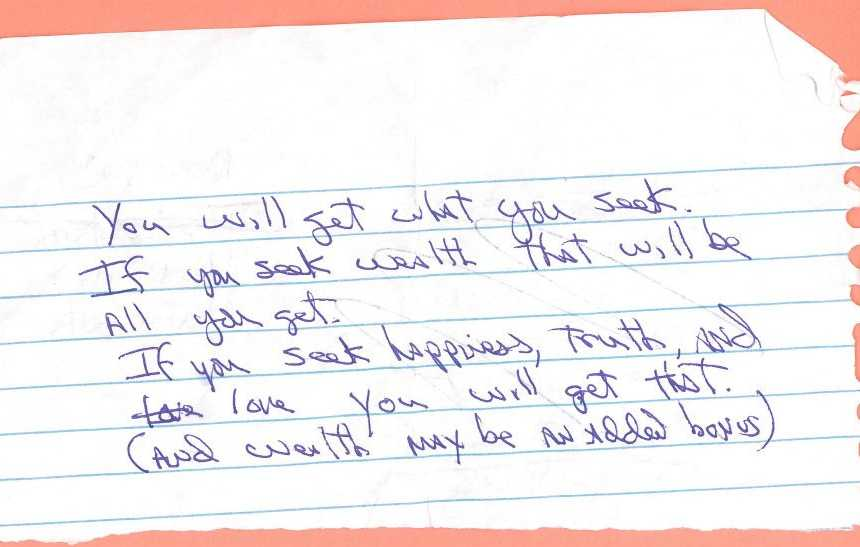 You will get what you seek.
If you seek wealth that will be
All you get.
If you seek happiness, truth, and
love love you will get that.
(And wealth may be an added bonus)